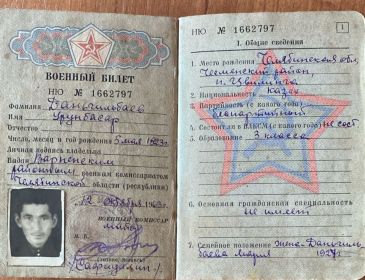 ВОЕННЫЙ БИЛЕТ
НЮ № 1662797
Фамилия Данигимбаев
Имя Урунбасар
Отчество
Число, месяц и год рождения 5 мая 1923 г.
Личная подпись владельца
Выдан Варненским
районным военным комиссариатом
Челябинской области (республики)
12 октября 1963 г.
ВОЕННЫЙ КОМИССАР
майор
М. П.
НЮ № 1662797
1
I. Общие сведения
1. Место рождения Челябинская обл.
Чесменский район,
п. Цвиллинга
2. Национальность казах
3. Партийность (с какого года)
беспартийный
4. Состоит ли в ВЛКСМ (с какого года) не сост
5. Образование 3 класса
6. Основная гражданская специальность
не имеет
7. Семейное положение жена - Данигим-
баева Мария 1927 г.